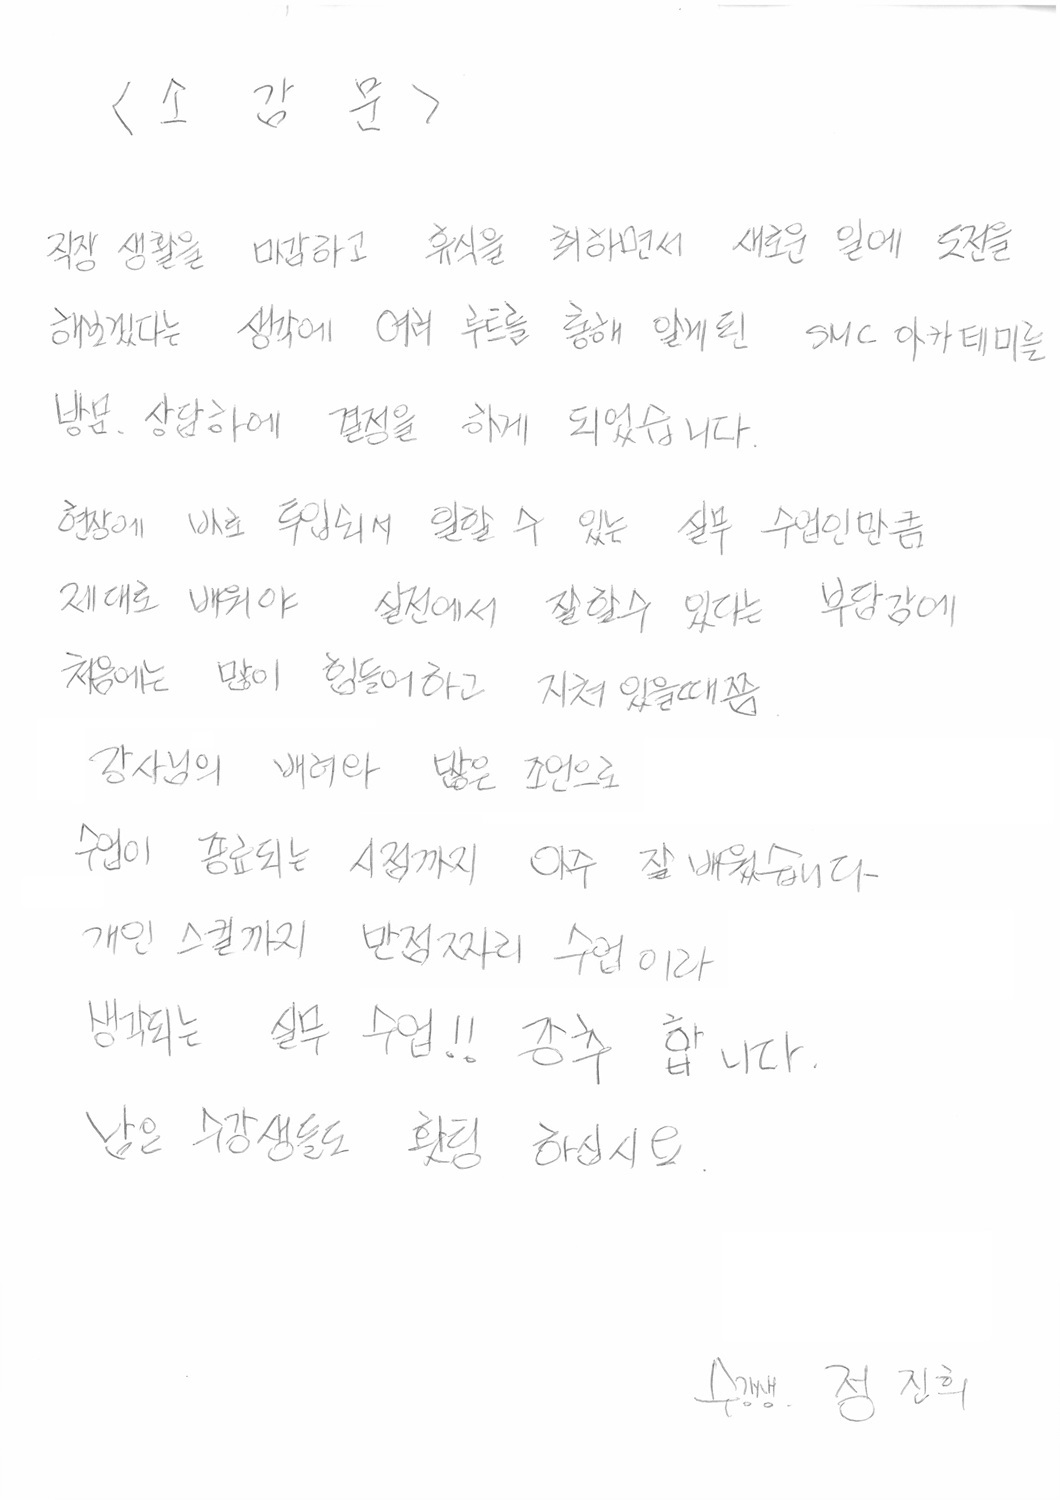 <소 감 문>
직장 생활을 마감하고 휴식을 취하면서 새로운 일에 도전을
해보겠다는 생각에 여러 루트를 통해 알게된 SMC 아카테미를
방문. 상담하에 결정을 하게 되었습니다.
현장에 바로 투입되서 일할 수 있는 실무 수업인만큼
제대로 배워야 실전에서 잘할수 있다는 부담감에
처음에는 많이 힘들어하고 지쳐 있을때쯤
강사님의 배려와 많은 조언으로
수업이 종료되는 시점까지 아주 잘 배웠습니다-
개인 스킬까지 만점짜리 수업이라
생각되는 실무 수업!! 강추 합니다.
남은 수강생들도 홧팅 하십시요.
수강생. 정 진희